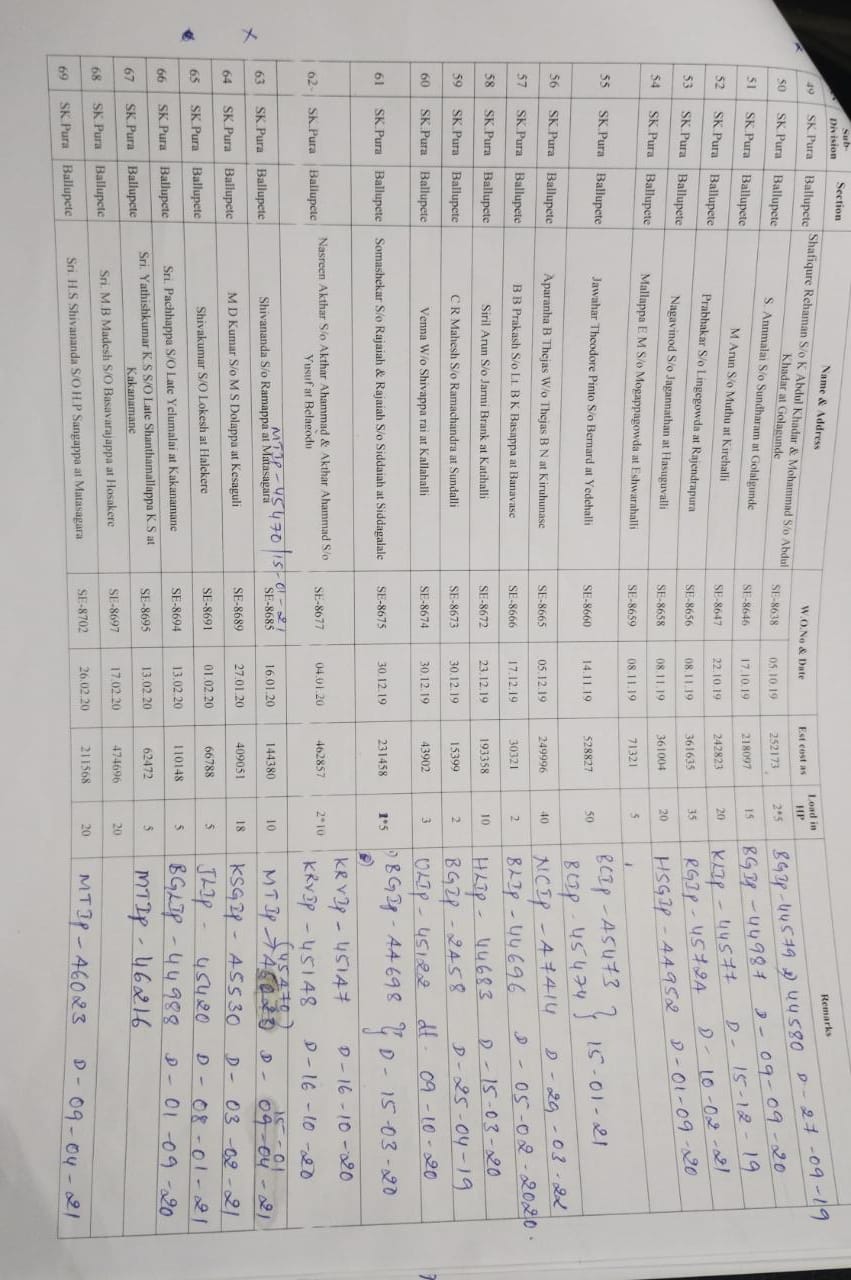 Sub-Division Section Name & Address W.O.No & Date Est cost as Load in HP Remarks
49 SK.Pura Ballupete Shafiqure Rehaman S/o K Abdul Khadar & Mohammad S/o Abdul
Khadar at Golagunde
50 SK.Pura SE-8638 05.10.19 252173 2*5 BGIP-44579 & 44580 D-27-09-19
51 SK.Pura Ballupete S. Annmalai S/o Sundharam at Golalgunde SE-8646 17.10.19 218097 15 BGIP-44987 D-09-09-20
52 SK.Pura Ballupete M Arun S/o Muthu at Kirehalli SE-8647 22.10.19 242823 20 KLIP-44577 D-15-12-19
53 SK.Pura Ballupete Prabhakar S/o Lingegowda at Rajendrapura SE-8656 08.11.19 361635 35 RGIP-45724 D-10-02-21
54 SK.Pura Ballupete Nagavinod S/o Jagannathan at Hasuguvalli SE-8658 08.11.19 361004 20 HSGIP-44952 D-01-09-20
Ballupete Mallappa E M S/o Mogappagowda at Eshwarahalli SE-8659 08.11.19 71321 5
55 SK.Pura Ballupete Jawahar Theodore Pinto S/o Bernard at Yedehalli SE-8660 14.11.19 528827 50 BCIP-45473
BCIP-45474 } 15-01-21
56 SK.Pura Ballupete Aparanha B Thejas W/o Thejas B N at Kiruhunase SE-8665 05.12.19 249996 40 NCIP-47414 D-29-03-22
57 SK.Pura Ballupete B B Prakash S/o Lt. B K Basappa at Banavase SE-8666 17.12.19 30321 2 BLIP-44696 D-05-02-2020.
58 SK.Pura Ballupete Siril Arun S/o Jarmi Brank at Katihalli SE-8672 23.12.19 193358 10 HLIP-44683 D-15-03-20
59 SK.Pura Ballupete C R Mahesh S/o Ramachandra at Sundalli SE-8673 30.12.19 15399 2 BGIP-2458 D-25-04-19
60 SK.Pura Ballupete Venna W/o Shivappa rai at Kallahalli SE-8674 30.12.19 43902 3 OLIP-45122 dt. 09-10-20
61 SK.Pura Ballupete Somashekar S/o Rajaiah & Rajaiah S/o Siddaiah at Siddagalale SE-8675 30.12.19 231458 1*5 1) BGIP-44698 } D-15-03-20
2)
62 SK.Pura Ballupete Nasreen Akthar S/o Akthar Ahammad & Akthar Ahammad S/o
Yusuf at Belagodu SE-8677 04.01.20 462857 2*10 KRVIP-45147 D-16-10-20
KRVIP-45148 D-16-10-20
MTIP-45470/15-01-21
63 SK.Pura Ballupete Shivananda S/o Ramappa at Matasagara SE-8685 16.01.20 144380 10 MTIP→ (45470) D-09-04-21
15-01
64 SK.Pura Ballupete M D Kumar S/o M S Dolappa at Kesaguli SE-8689 27.01.20 409051 18 KSGIP-45530 D-03-02-21
65 SK.Pura Ballupete Shivakumar S/O Lokesh at Halekere SE-8691 01.02.20 66788 5 JLIP-45420 D-08-01-21
66 SK.Pura Ballupete Sri. Pachhappa S/O Late Yelumalai at Kakanamane SE-8694 13.02.20 110148 5 BGLIP-44988 D-01-09-20
67 SK.Pura Ballupete Sri. Yathishkumar K.S S/O Late Shanthamallappa K.S at
Kakanamane SE-8695 13.02.20 62472 5 MTIP-46216
68 SK.Pura Ballupete Sri. M.B Madesh S/O Basavarajappa at Hosakere SE-8697 17.02.20 474696 20
69 SK.Pura Ballupete Sri. H.S Shivananda S/O H.P Sangappa at Matasagara SE-8702 26.02.20 211568 20 MTIP-46023 D-09-04-21